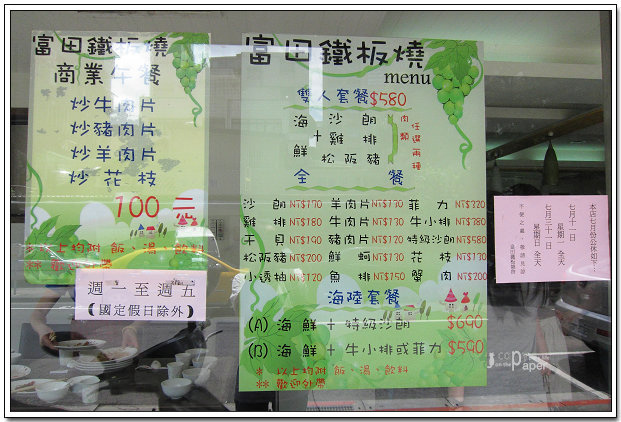 富田鐵板燒
商業午餐
炒牛肉片
炒豬肉片
炒羊肉片
炒花枝
100元
※以上均附 飯、湯、飲料
週一至週五
(國定假日除外)
富田鐵板燒
menu
雙人套餐$580
海鮮 + 沙朗 雞排 松阪豬
肉類任選兩種
全餐
沙朗 NT$170 羊肉片 NT$130 菲力 NT$320
雞排 NT$180 牛肉片 NT$130 牛小排 NT$780
干貝 NT$190 豬肉片 NT$120 特級沙朗 NT$580
松阪豬 NT$200 鮮蚵 NT$130 花枝 NT$130
NT$120 魚排 NT$150 蟹肉 NT$200
海陸套餐
(A) 海鮮 + 特級沙朗 $690
(B) 海鮮 + 牛小排或菲力 $590
* 以上均附 飯、湯、飲料
** 歡迎外帶
本店七月份公休如下:
七月十一日
星期一 全天
星期日 全天
不便之處 敬請見諒
on the Paper